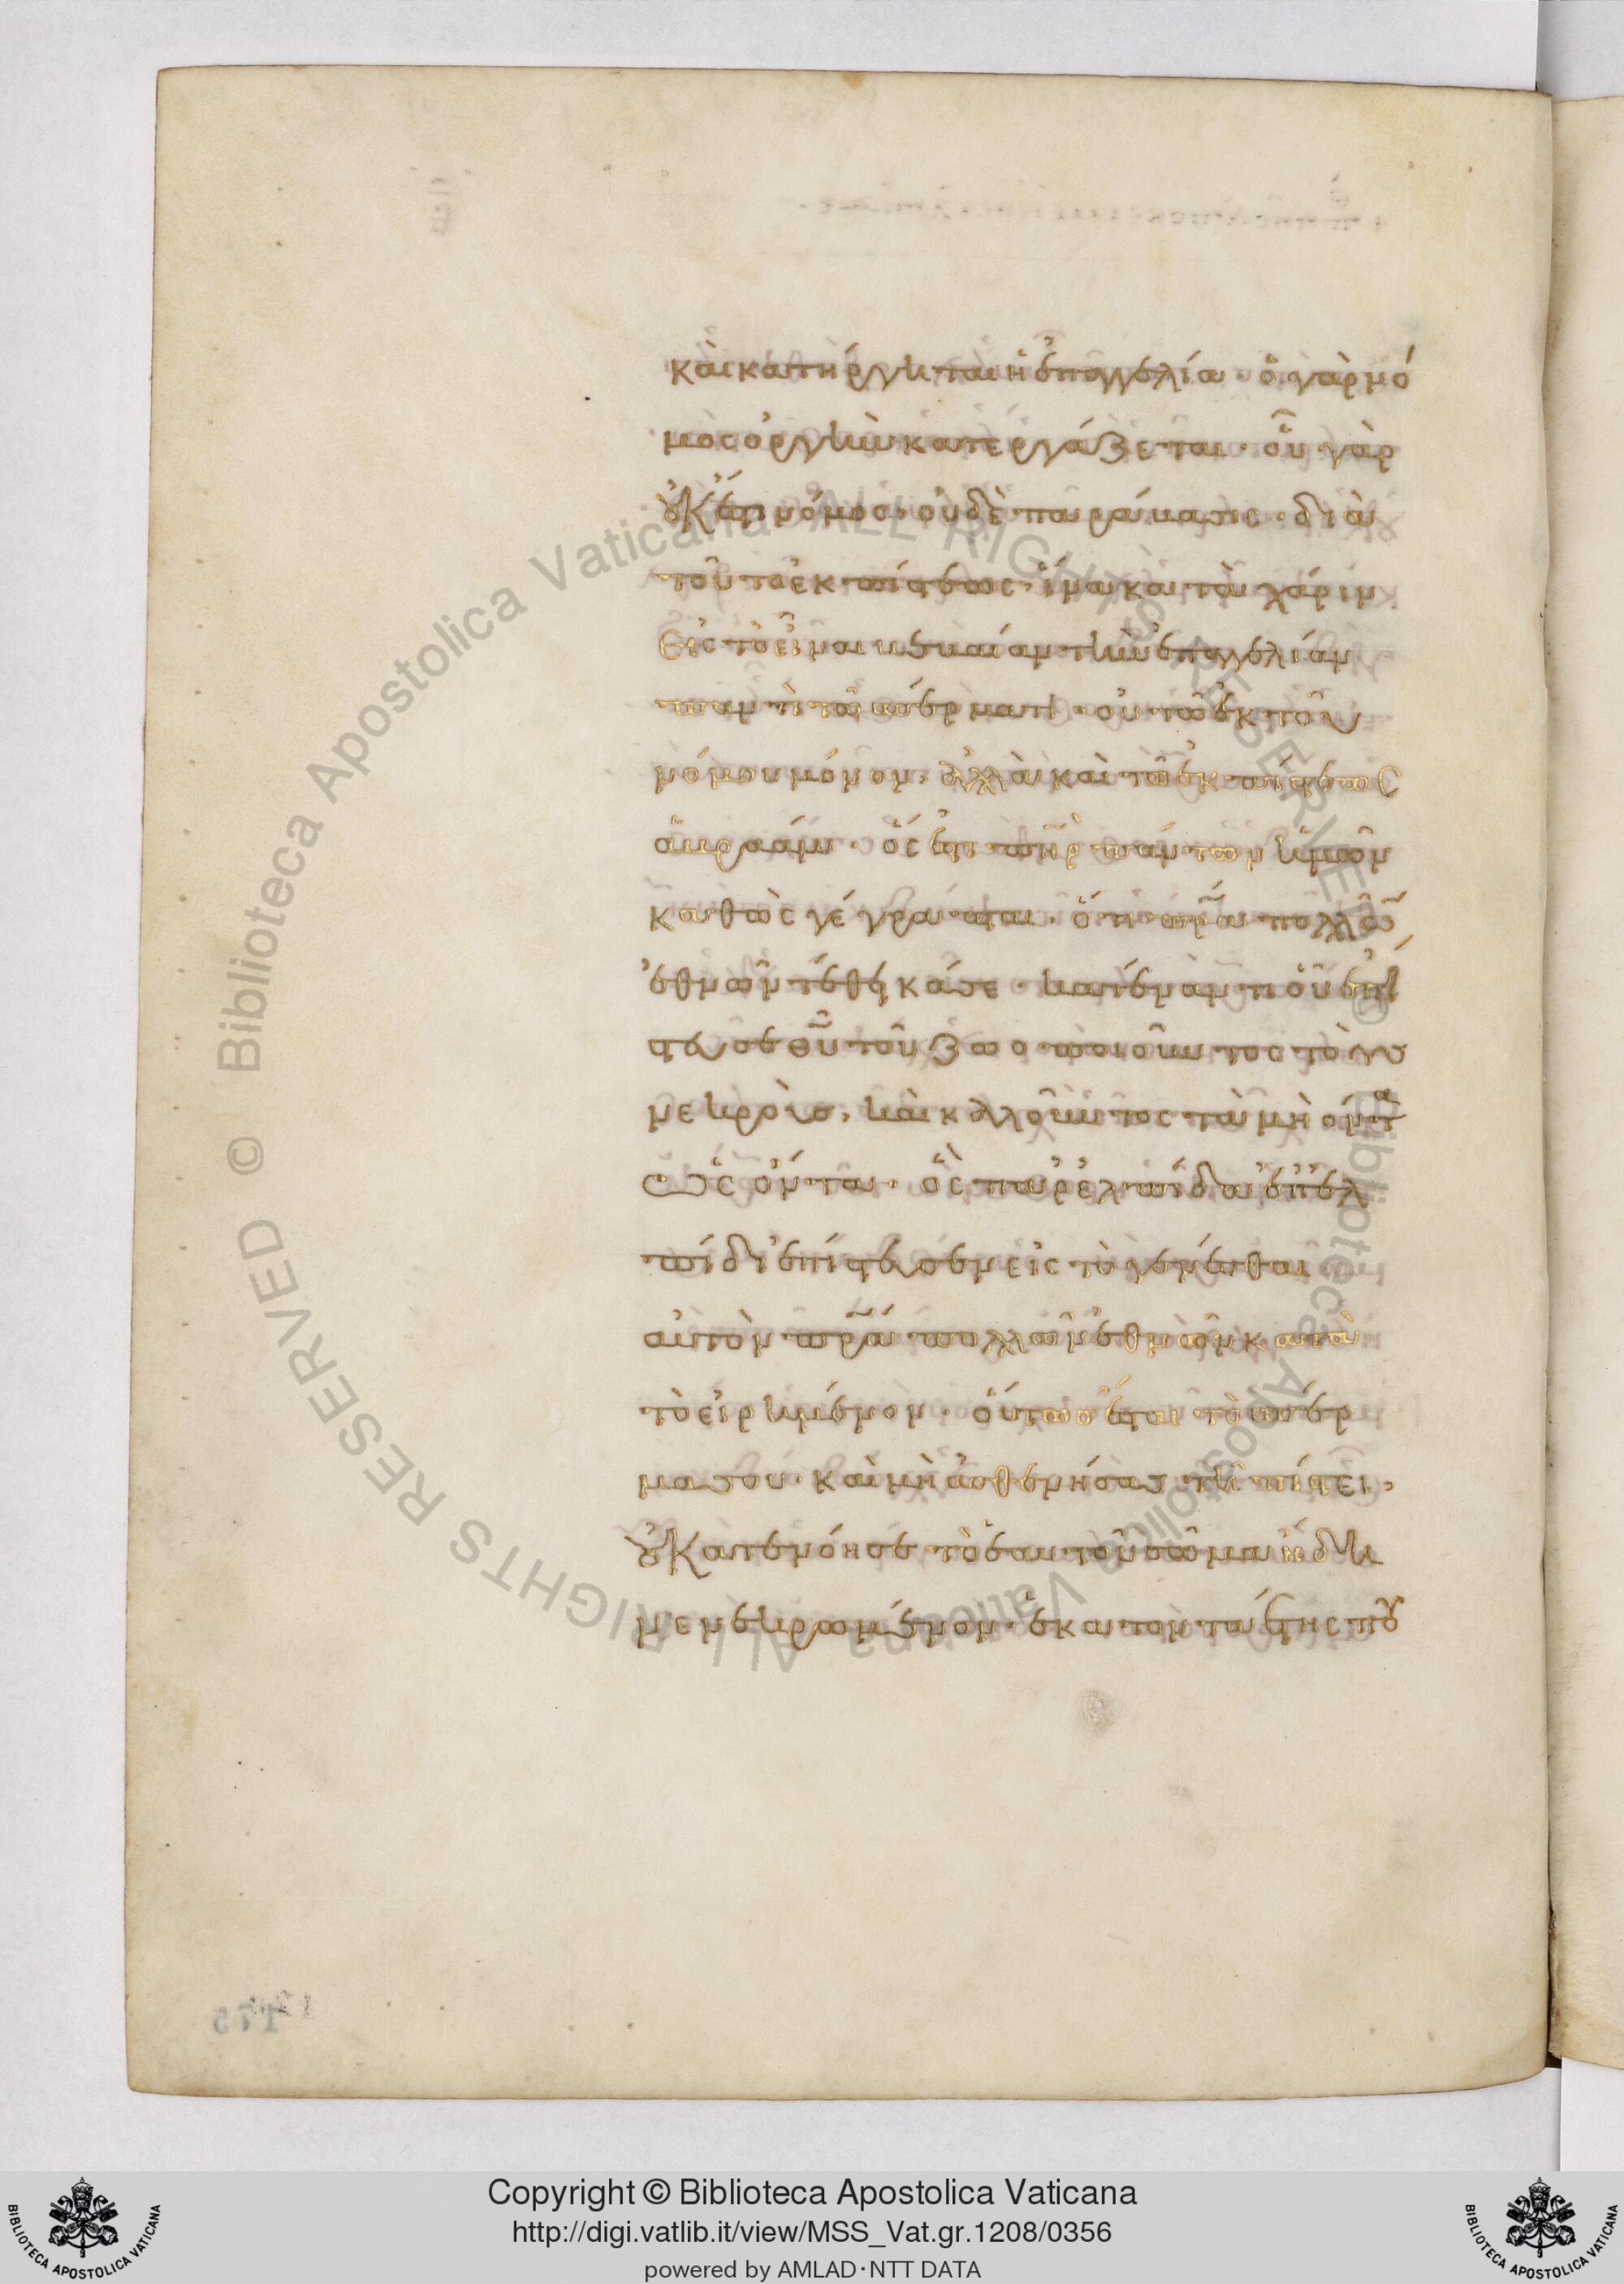 καὶ κατήργηται ἡ ἐπαγγελία · ὁ γὰρ νό
μος ὀργὴν κατεργάζεται · οὗ γὰρ
οὐκ ἔστι νόμος · οὐδὲ παράβασις · διὰ
τοῦτο ἐκ πίστεως · ἵνα κατὰ χάριν
εἰς τὸ εἶναι βεβαίαν τὴν ἐπαγγελίαν
παντὶ τῷ σπέρματι · οὐ τῷ ἐκ τοῦ
νόμου μόνον · ἀλλὰ καὶ τῷ ἐκ πίστεως
ἀβραάμ · ὅς ἐστι πηρ πάντων ἡμῶν
καθὼς γέγραπται · ὅτι πρα πολλῶ
ἐθνῶν τέθεικά σε · κατέναντι οὗ ἐπί
στευσε θυ τοῦ ζωοποιοῦντος τοὺς
νεκροὺς · καὶ καλοῦντος τὰ μὴ ὄντα
ὡς ὄντα · ὃς παρ ἐλπίδα ἐπ ἐλ
πίδι ἐπίστευσεν εἰς τὸ γενέσθαι
αὐτὸν πρα πολλῶν ἐθνῶν κατὰ
τὸ εἰρημένον · οὕτως ἔσται τὸ σπέρ
μα σου · καὶ μὴ ἀσθενήσας τῇ πίστει ·
οὐ κατενόησε τὸ ἑαυτοῦ σῶμα ἤδη
νενεκρωμένον · ἑκατονταέτης που
Copyright © Biblioteca Apostolica Vaticana
http://digi.vatlib.it/view/MSS_Vat.gr.1208/0356
powered by AMLAD·NTT DATA